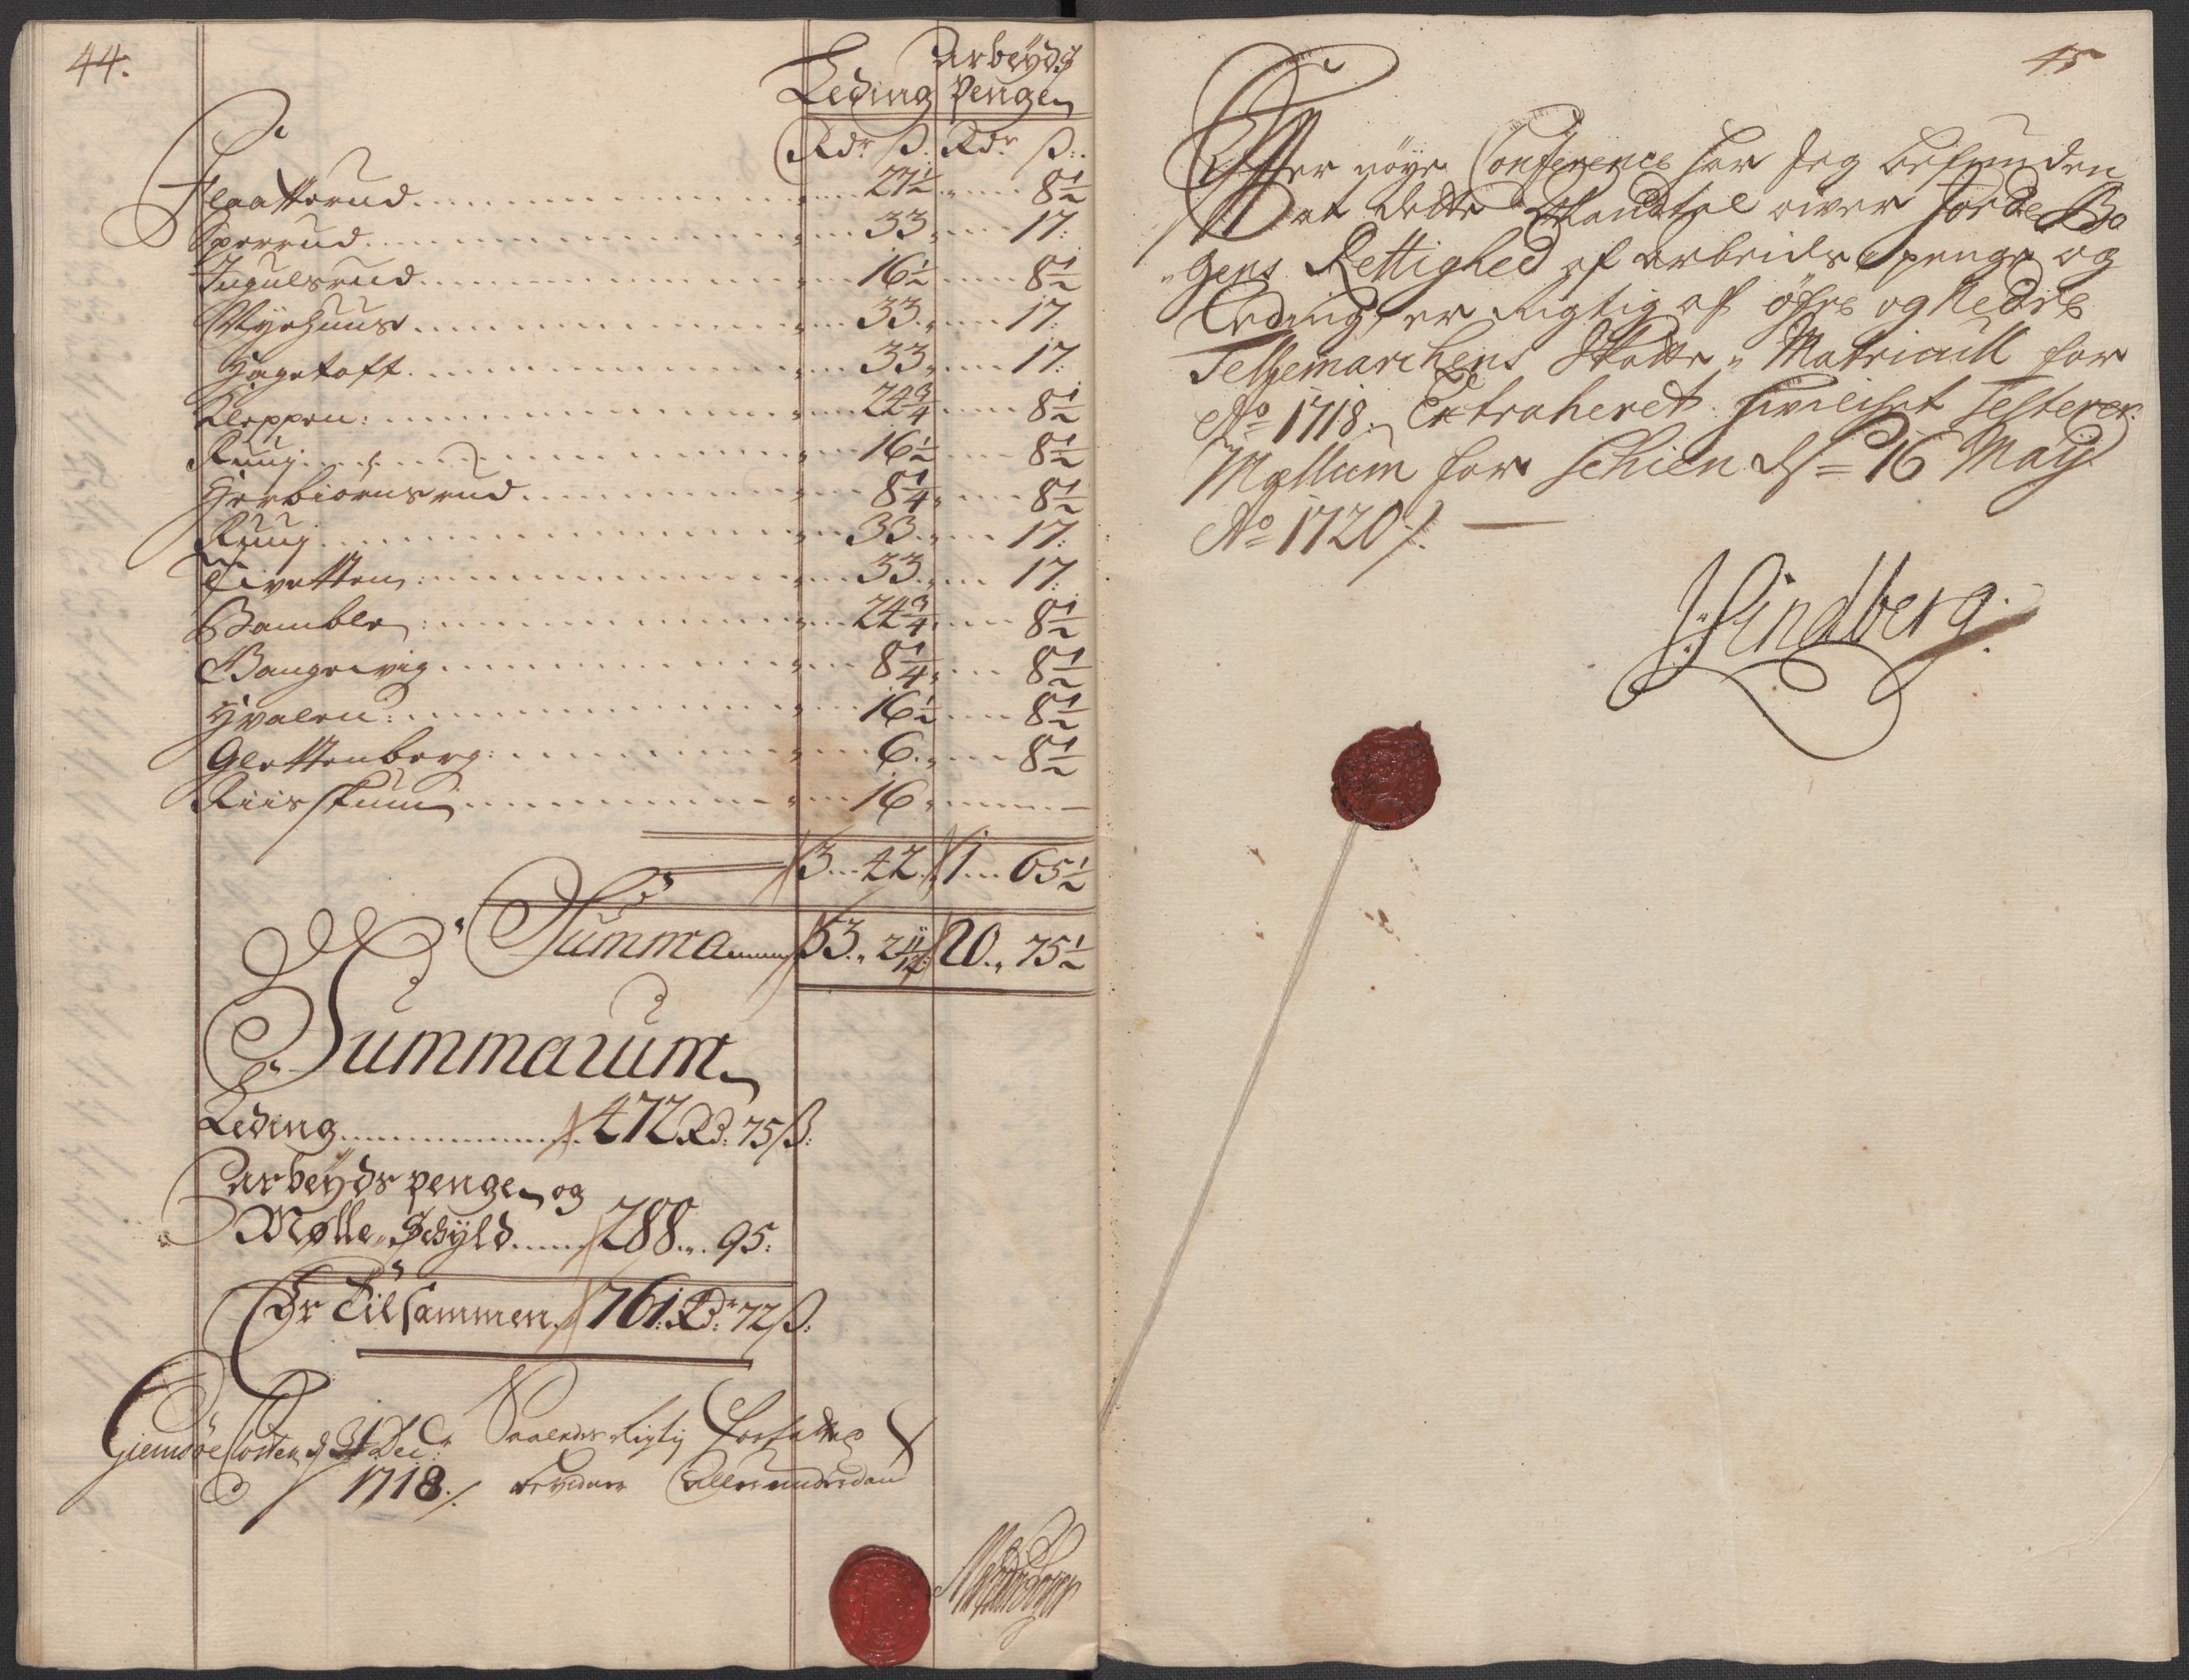 44.
Arbeÿds
Leding Pengen
Rdr ß. Rdr ß:
Flaatterud 27½ 8½
Sperrud 33 17:
Ingulsrud 16½ 8½
Myrhuus 33 17:
Hagetofft 33 17:
Kleppen: 24¾ 8½
Ruuj 16½ 8½
Herbiørnsrud 8¼ 8½
Ruuj 33 17:
Tvetten 33 17:
Bamble 24¾ 8½
Bangevig 8¼ 8½
Hvalen: 16½ 8½
Glettenberg: 6 8½
Riis 16 —
3 42 1 65½
Summa 53 2 11/12 20 75½
Summarum
Leding 472 Rd: 75 ß:
Arbeÿds pengen og
Mølle Schÿld 288 95:
Er Tilsammen 761: Rd: 72 ß:
Giemsøe Closter d 31 Decr: Saaledes Rigtig forfatted
1718 ./.
45
Effter nøye Conference har Jeg befunden
at dette Mandtal over Jorde Bo
gens Rettighed af arbeids penge og
Leding, er rigtig af øfre og Nedre
Tellemarchens Skatte Matricull for
Ao 1718. Extraheret.
Mællum for Schien ds 16 Maÿ
Ao 1720 ./.
J: Lindberg.